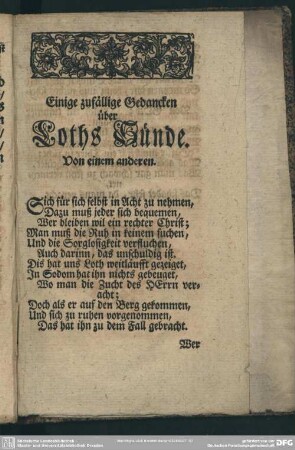 Einige zufällige Gedancken
über
Loths Sünde.
Von einem anderen.
Sich für sich selbst in Acht zu nehmen,
Dazu muß jeder sich bequemen,
Wer bleiben wil ein rechter Christ;
Man muß die Ruh in keinem suchen,
Und die Sorglosigkeit verfluchen,
Auch darinn, das unschuldig ist.
Dis hat uns Loth weitläufft gezeiget,
In Sodom hat ihn nichts gebeuget,
Wo man die Zucht des HErrn ver-
acht;
Doch als er auf den Berg gekommen,
Und sich zu ruhen vorgenommen,
Das hat ihn zu dem Fall gebracht.
Wer